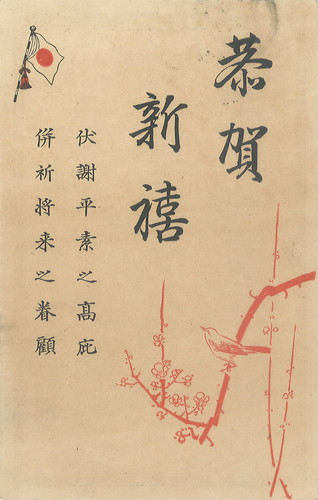 恭賀
新禧
伏謝平素之高庇
併祈将来之眷顧